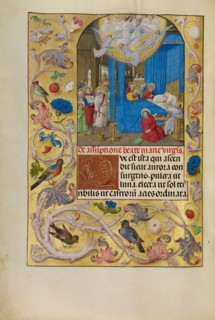 De assūptione beate marie virgīs.
Ve est ista que ascen
dit sicut aurora con
surgens. pulcra ut
luna. electa ut sol ter
ribilis ut castrorū acies ordinata